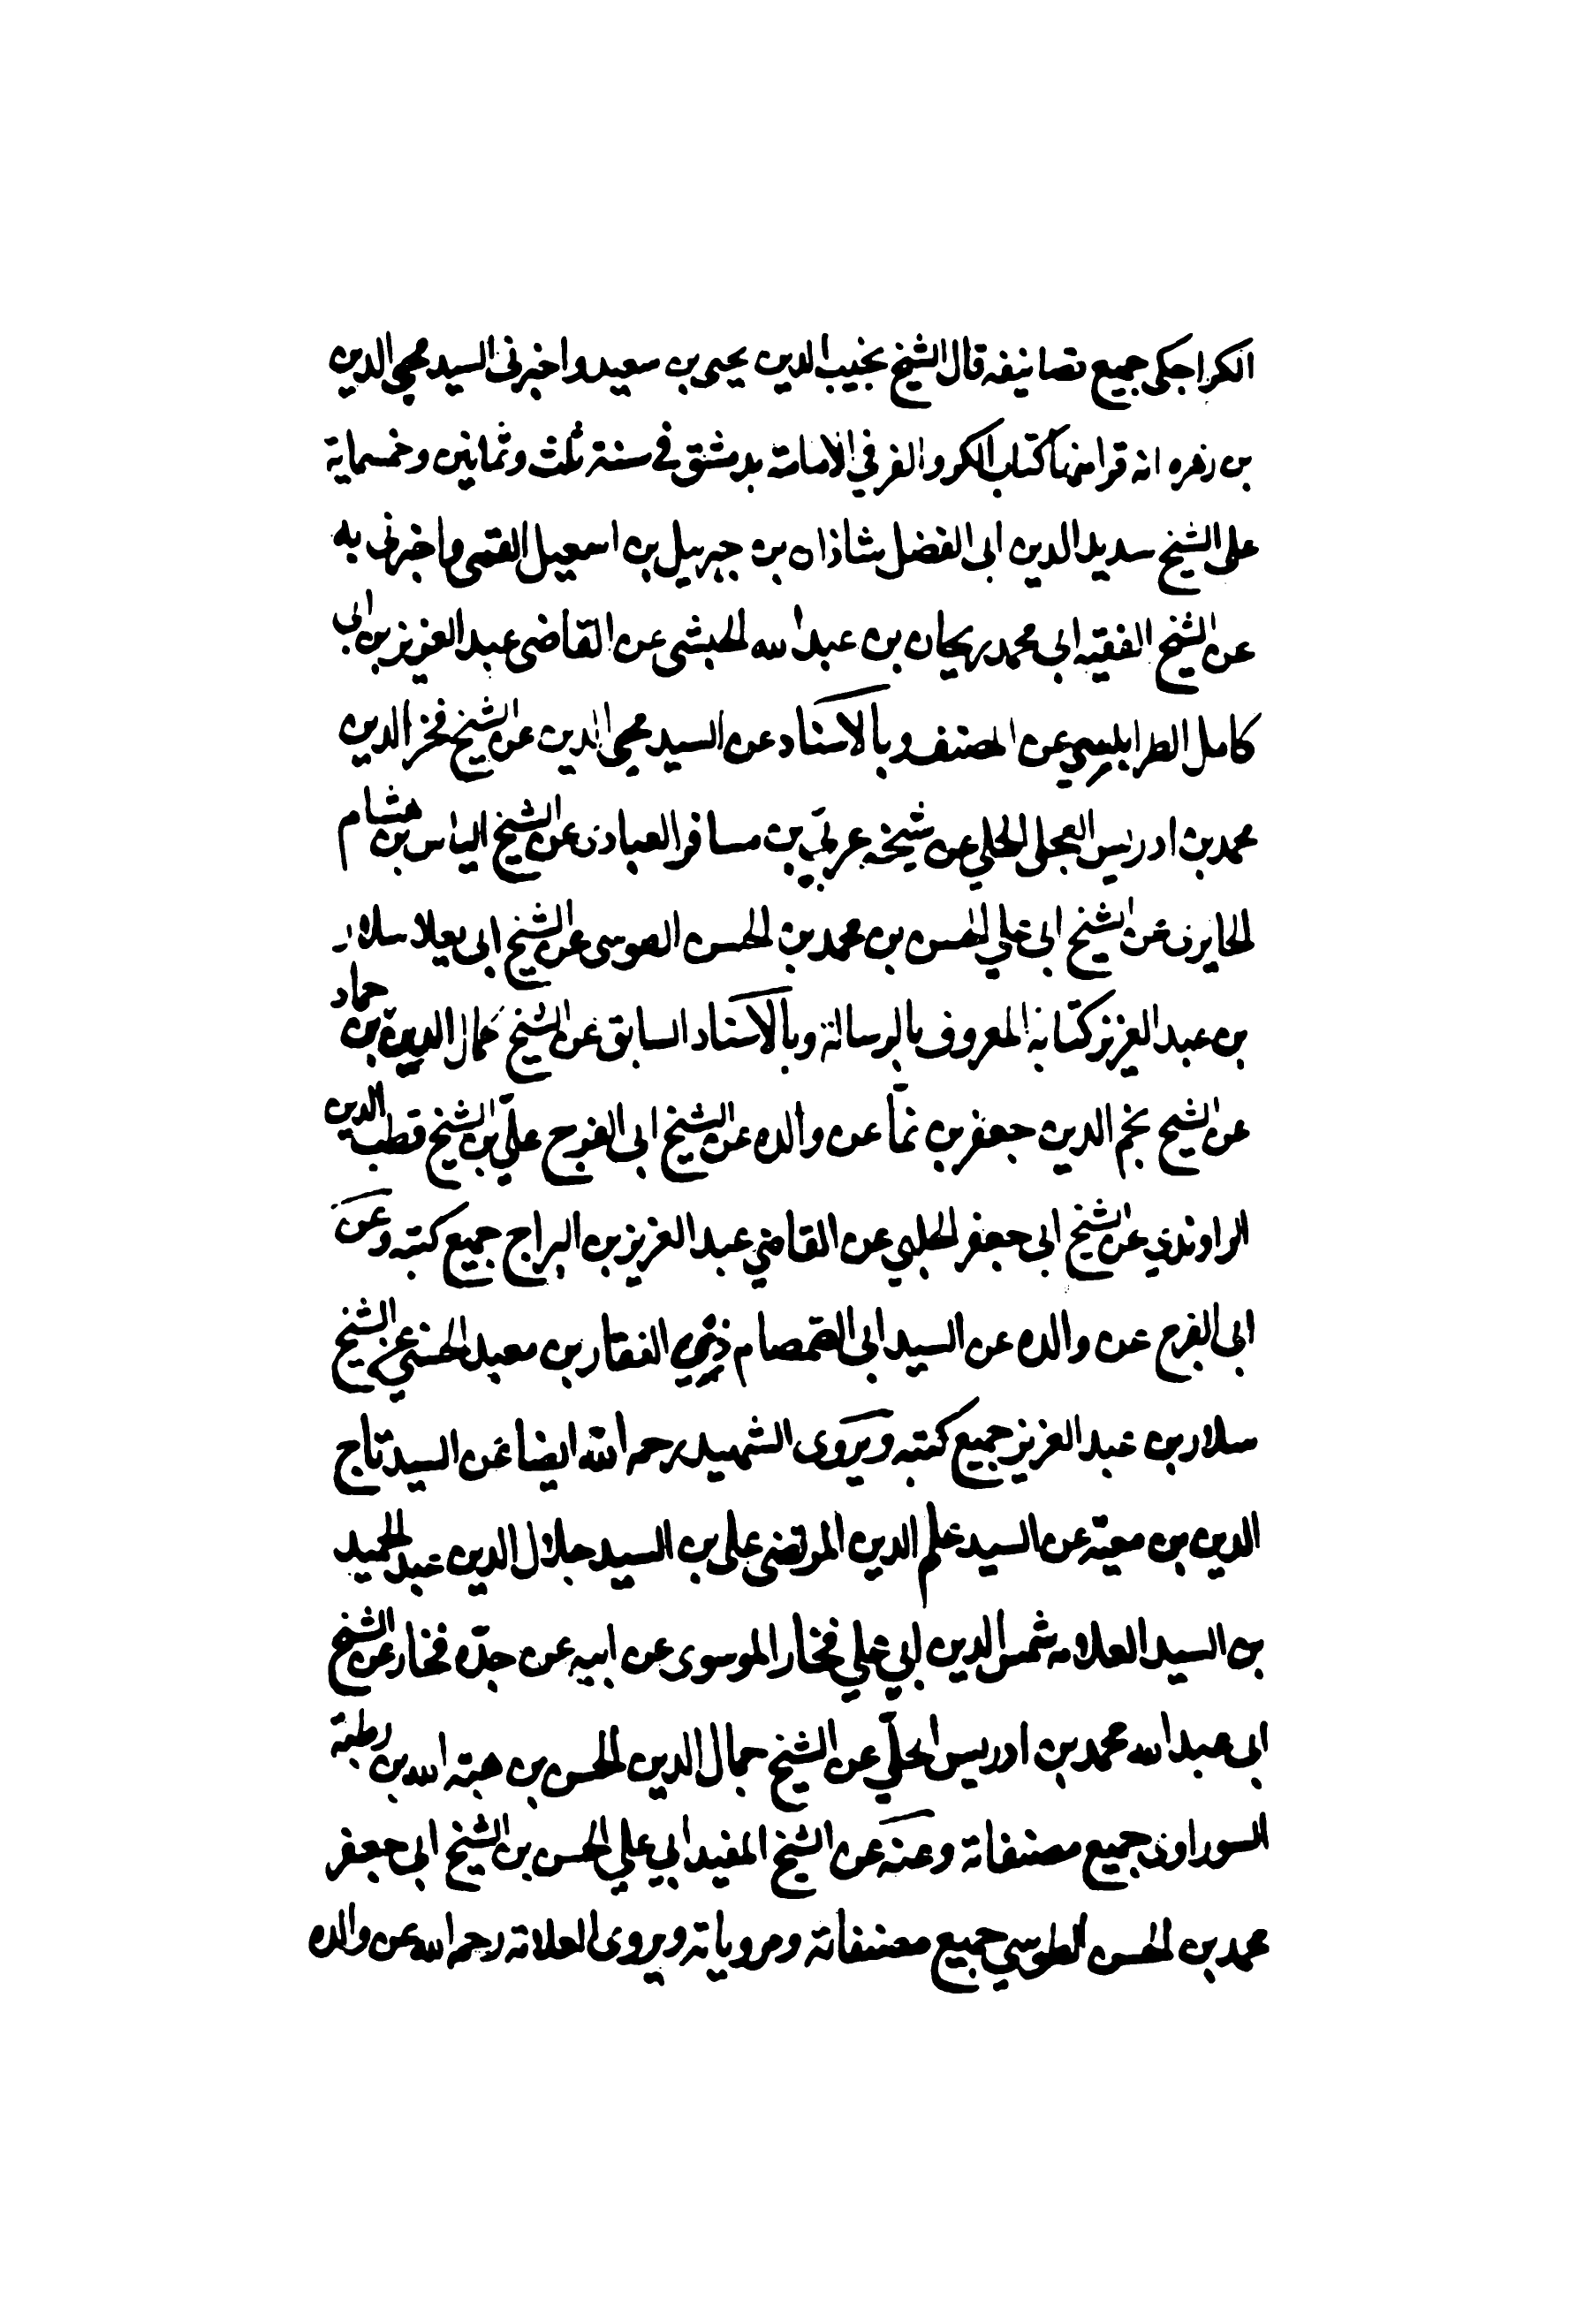 الكراجكى جميع تصانيفه قال الشيخ نجيب الدين يحيى بن سعيد واخبرنى السيد محيى الدين
بن زهره انه قرا منها كتاب الكر والفر في الامامة بدمشق في سنة ثلث وثمانين وخمسماية
على الشيخ سديد الدين ابى الفضل شاذان بن جبرييل بن اسمعيل القمى واخبرنى به
عن الشيخ الفقيه ابي محمد ريحان بن عبد الله الحبشى عن القاضى عبد العزيز بن ابي
كامل الطرابلسي عن المصنف وبالاسناد عن السيد محيى الدين عن الشيخ فخر الدين
محمد بن ادريس العجلى الحلي عن شيخه عربيّ بن مسافر العبادى عن الشيخ الياس بن هشام
الحايرى عن الشيخ ابى علي الحسن بن محمد بن الحسن الطوسى عن الشيخ ابى يعلا سلار
بن عبد العزيز كتابه المعروف بالرسالة وبالاسناد السابق عن الشيخ كمال الدين بن حماد
عن الشيخ نجم الدين جعفر بن نمّا عن والده عن الشيخ ابى الفرج عليّ بن الشيخ قطب الدين
الراوندي عن الشيخ ابى جعفر الحلبي عن القاضي عبد العزيز بن البراج جميع كتبه وعن
ابى الفرج عن والده عن السيد ابى الصمصام ذي الفقار بن معبد الحسني عن الشيخ
سلار بن عبد العزيز جميع كتبه ويروى الشهيد رحمه الله ايضا عن السيد تاج
الدين بن معيّه عن السيد علم الدين المرتضى على بن السيد جلال الدين عبد الحميد
بن السيد العلامه شمس الدين ابي علي فخار الموسوى عن ابيه عن جدّه فخار عن الشيخ
ابى عبد الله محمد بن ادريس الحلّي عن الشيخ جمال الدين الحسن بن هبة الله بن رطبة
السوراوى جميع مصنفاته وعنه عن الشيخ المفيد ابي علي الحسن بن الشيخ ابى جعفر
محمد بن الحسن الطوسي جميع مصنفاته ومروياته ويروى العلامة رحمه الله عن والده